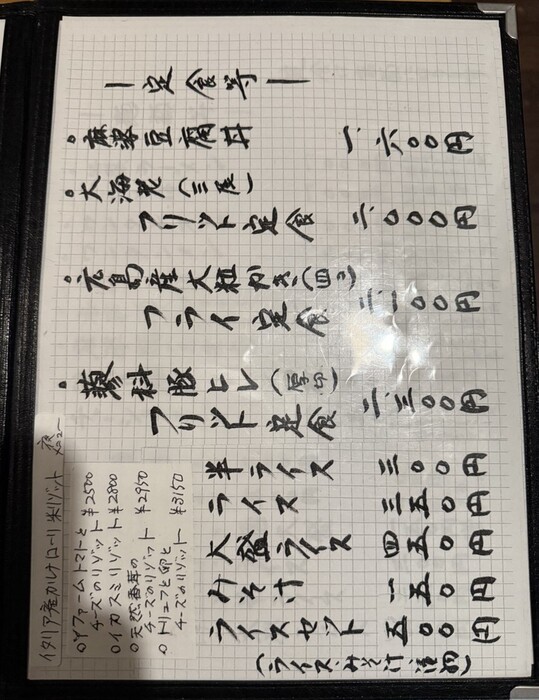 ー定食等ー
・麻婆豆腐丼 一、六〇〇円
・大海老(三尾)
フリット定食 二、〇〇〇円
・広島産大粒かき(四コ)
フライ定食 二、一〇〇円
・蓼科豚ヒレ(厚切)
フリット定食 二、三〇〇円
半ライス 三〇〇円
ライス 三五〇円
大盛ライス 四五〇円
みそ汁 一五〇円
ライスセット 五〇〇円
(ライス・みそ汁・漬物)
夜メニュー
イタリア産カルナローリ米リゾット
○Yファームトマトと
チーズのリゾット ¥2500
○イカスミリゾット ¥2800
○天然香茸の
チーズのリゾット ¥2950
○トリュフと卵と
チーズのリゾット ¥3150